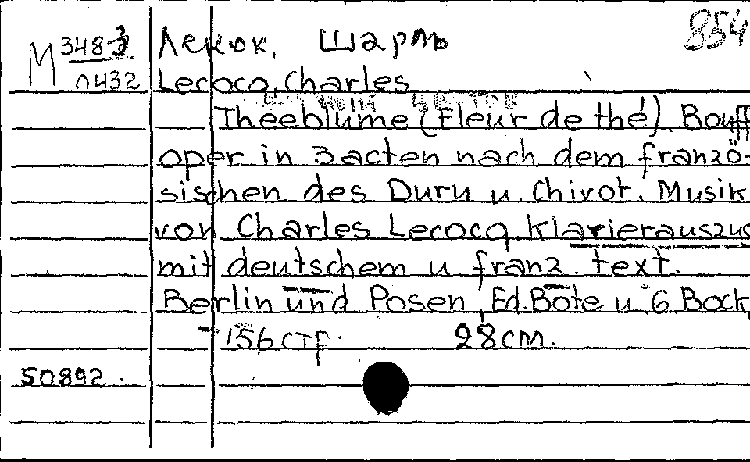 854
М 348-3
0432
Лекок, Шарль
Lecocq, Charles
Theeblume (Fleur de thé). Bouff
oper in 3 acten nach dem franzö-
sischen des Duru u. Chivot. Musik
von Charles Lecocq Klavierauszug
mit deutschem u franz. text.
Berlin und Posen, Ed. Bote u. G. Bock,
156 стр. 28 см.
50892.